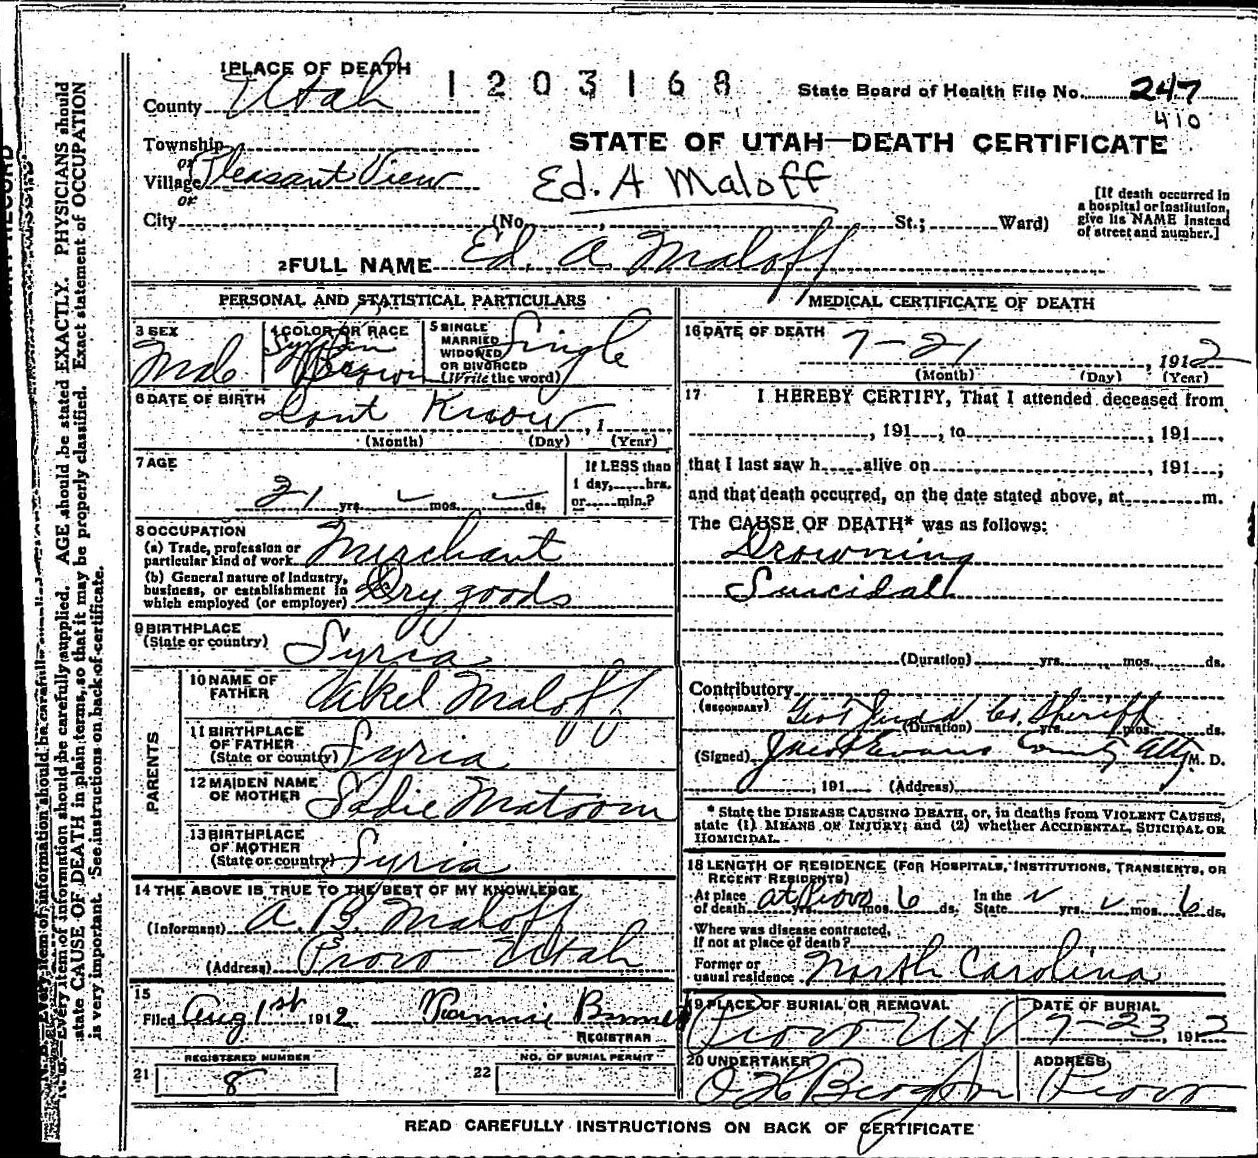 1 PLACE OF DEATH
1203168
State Board of Health File No. 247
410
County Utah
Township
or
Village Pleasant View
or
City (No. , St.; Ward)
STATE OF UTAH—DEATH CERTIFICATE
Ed. A Maloff
[If death occurred in
a hospital or institution,
give its NAME instead
of street and number.]
2 FULL NAME Ed. A. Maloff
PERSONAL AND STATISTICAL PARTICULARS
3 SEX
Male
4 COLOR OR RACE
Syrian
Brown
5 SINGLE
MARRIED
WIDOWED
OR DIVORCED
(Write the word)
Single
6 DATE OF BIRTH Dont Know , 1
(Month) (Day) (Year)
7 AGE
21 yrs. mos. ds.
If LESS than
1 day, hrs.
or min.?
8 OCCUPATION
(a) Trade, profession or
particular kind of work Merchant
(b) General nature of Industry,
business, or establishment in
which employed (or employer) Dry goods
9 BIRTHPLACE
(State or country) Syria
PARENTS
10 NAME OF
FATHER Maloff
11 BIRTHPLACE
OF FATHER
(State or country) Syria
12 MAIDEN NAME
OF MOTHER Sadie Matoom
13 BIRTHPLACE
OF MOTHER
(State or country) Syria
14 THE ABOVE IS TRUE TO THE BEST OF MY KNOWLEDGE
(Informant) A. B. Maloff
(Address) Provo Utah
15
Filed Aug 1st 1912
REGISTRAR
REGISTERED NUMBER
21 8
NO. OF BURIAL PERMIT
22
MEDICAL CERTIFICATE OF DEATH
16 DATE OF DEATH 7-21, 1912
(Month) (Day) (Year)
17 I HEREBY CERTIFY, That I attended deceased from
, 191 , to , 191 ,
that I last saw h alive on , 191 ;
and that death occurred, on the date stated above, at m.
The CAUSE OF DEATH* was as follows:
Drowning
Suicidall
(Duration) yrs. mos. ds.
Contributory
(SECONDARY) Geo T Judd Co. Sheriff
(Duration) yrs. mos. ds.
(Signed) Jacob Evans County Atty M. D.
, 191 (Address)
* State the DISEASE CAUSING DEATH, or, in deaths from VIOLENT CAUSES,
state (1) MEANS OF INJURY; and (2) whether ACCIDENTAL, SUICIDAL OR
HOMICIDAL.
18 LENGTH OF RESIDENCE (FOR HOSPITALS, INSTITUTIONS, TRANSIENTS, OR
RECENT RESIDENTS)
At place
of death at Provo yrs. mos. 6 ds. In the
State yrs. mos. 6 ds.
Where was disease contracted,
if not at place of death?
Former or
usual residence North Carolina
19 PLACE OF BURIAL OR REMOVAL
Provo Ut
DATE OF BURIAL
7-23, 1912
20 UNDERTAKER
ADDRESS
Provo
READ CAREFULLY INSTRUCTIONS ON BACK OF CERTIFICATE
Every item of information should be carefully supplied. AGE should be stated EXACTLY. PHYSICIANS should
state CAUSE OF DEATH in plain terms, so that it may be properly classified. Exact statement of OCCUPATION
is very important. See instructions on back of certificate.